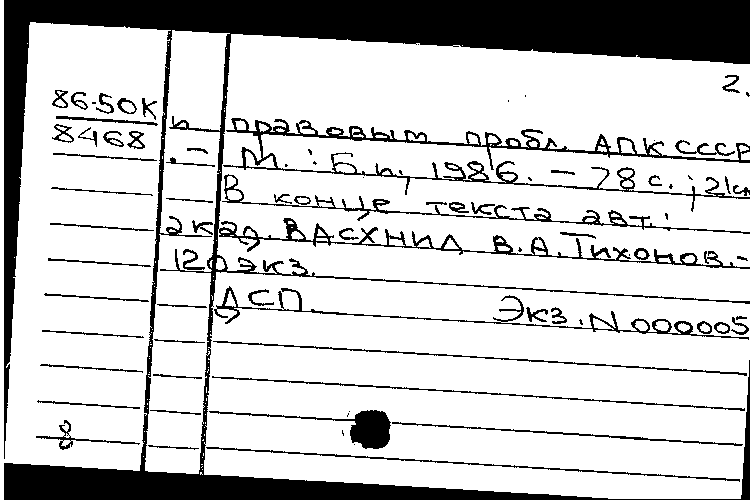 2.
86-50К
8468
и правовым пробл. АПК СССР
.- М.: Б.и., 1986. - 78 с.; 21см
В конце текста авт.:
акад. ВАСХНИЛ В.А.Тихонов.-
120экз.
ДСП. Экз. N 000005
8